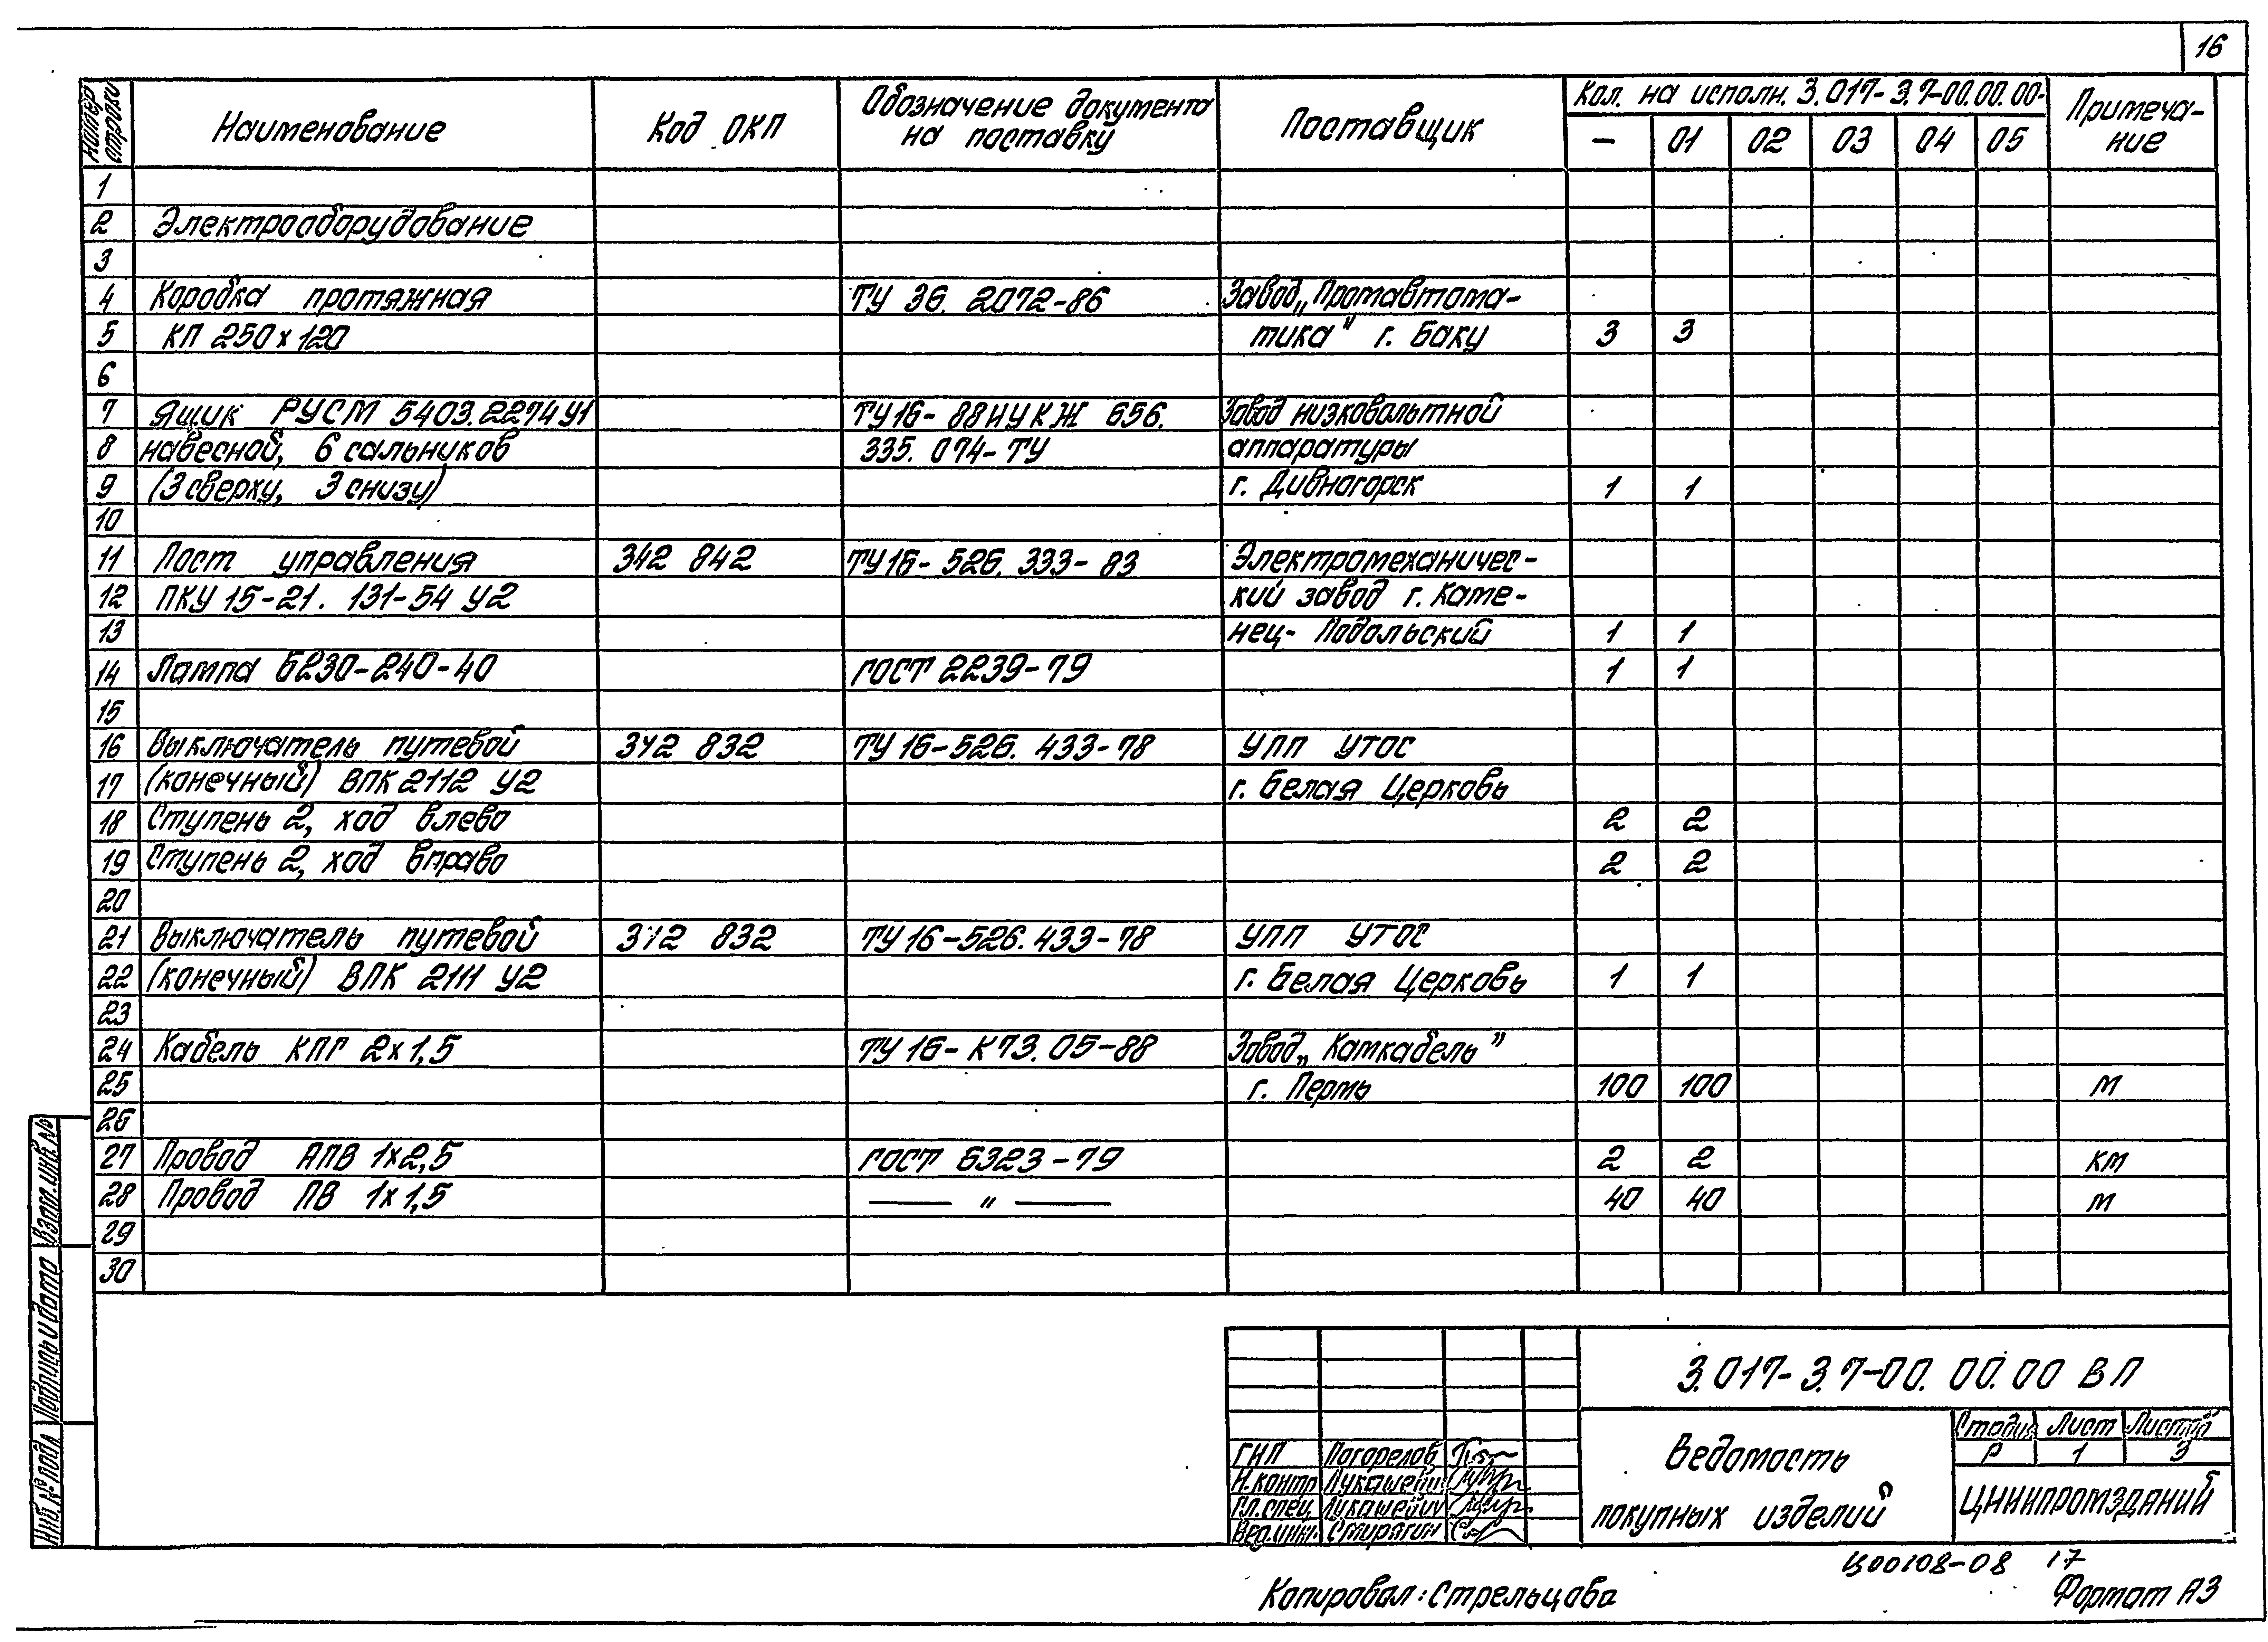 16
Номер строки Наименование Код ОКП Обозначение документа на поставку Поставщик Кол. на исполн. 3.017-3.7-00.00.00- Примеча-ние
– 01 02 03 04 05
1
2 Электрооборудование
3
4 Коробка протяжная ТУ 36. 2072-86 Завод „Промавтома-
5 КП 250х120 тика" г. Баку 3 3
6
7 Ящик РУСМ 5403.2274У1 ТУ16-88ИУКЖ 656. Завод низковольтной
8 навесной, 6 сальников 335. 074-ТУ аппаратуры
9 (3 сверху, 3 снизу) г. Дивногорск 1 1
10
11 Пост управления 342 842 ТУ16-526. 333-83 Электромеханичес-
12 ПКУ 15-21. 131-54 У2 кий завод г. Каме-
13 нец-Подольский 1 1
14 Лампа Б230-240-40 ГОСТ 2239-79 1 1
15
16 Выключатель путевой 342 832 ТУ 16-526. 433-78 УПП УТОС
17 (конечный) ВПК 2112 У2 г. Белая Церковь
18 Ступень 2, ход влево 2 2
19 Ступень 2, ход вправо 2 2
20
21 Выключатель путевой 342 832 ТУ 16-526. 433-78 УПП УТОС
22 (конечный) ВПК 2111 У2 г. Белая Церковь 1 1
23
24 Кабель КПГ 2х1,5 ТУ 16-К73. 05-88 Завод „Камкабель"
25 г. Пермь 100 100 м
26
27 Провод АПВ 1х2,5 ГОСТ 6323-79 2 2 км
28 Провод ПВ 1х1,5 — " — 40 40 м
29
30
Взам. инв. №
Подпись и дата
Инв. № подл.
3.017-3.7-00. 00.00 ВП
Ведомость
покупных изделий
Стадия Лист Листов
Р 1 3
ЦНИИПРОМЗДАНИЙ
ГИП Погорелов
Н.контр Лукашевич
Гл.спец. Лукашевич
Вед.инж.
Ц00108-08 17
Копировал: Стрельцова
Формат А3